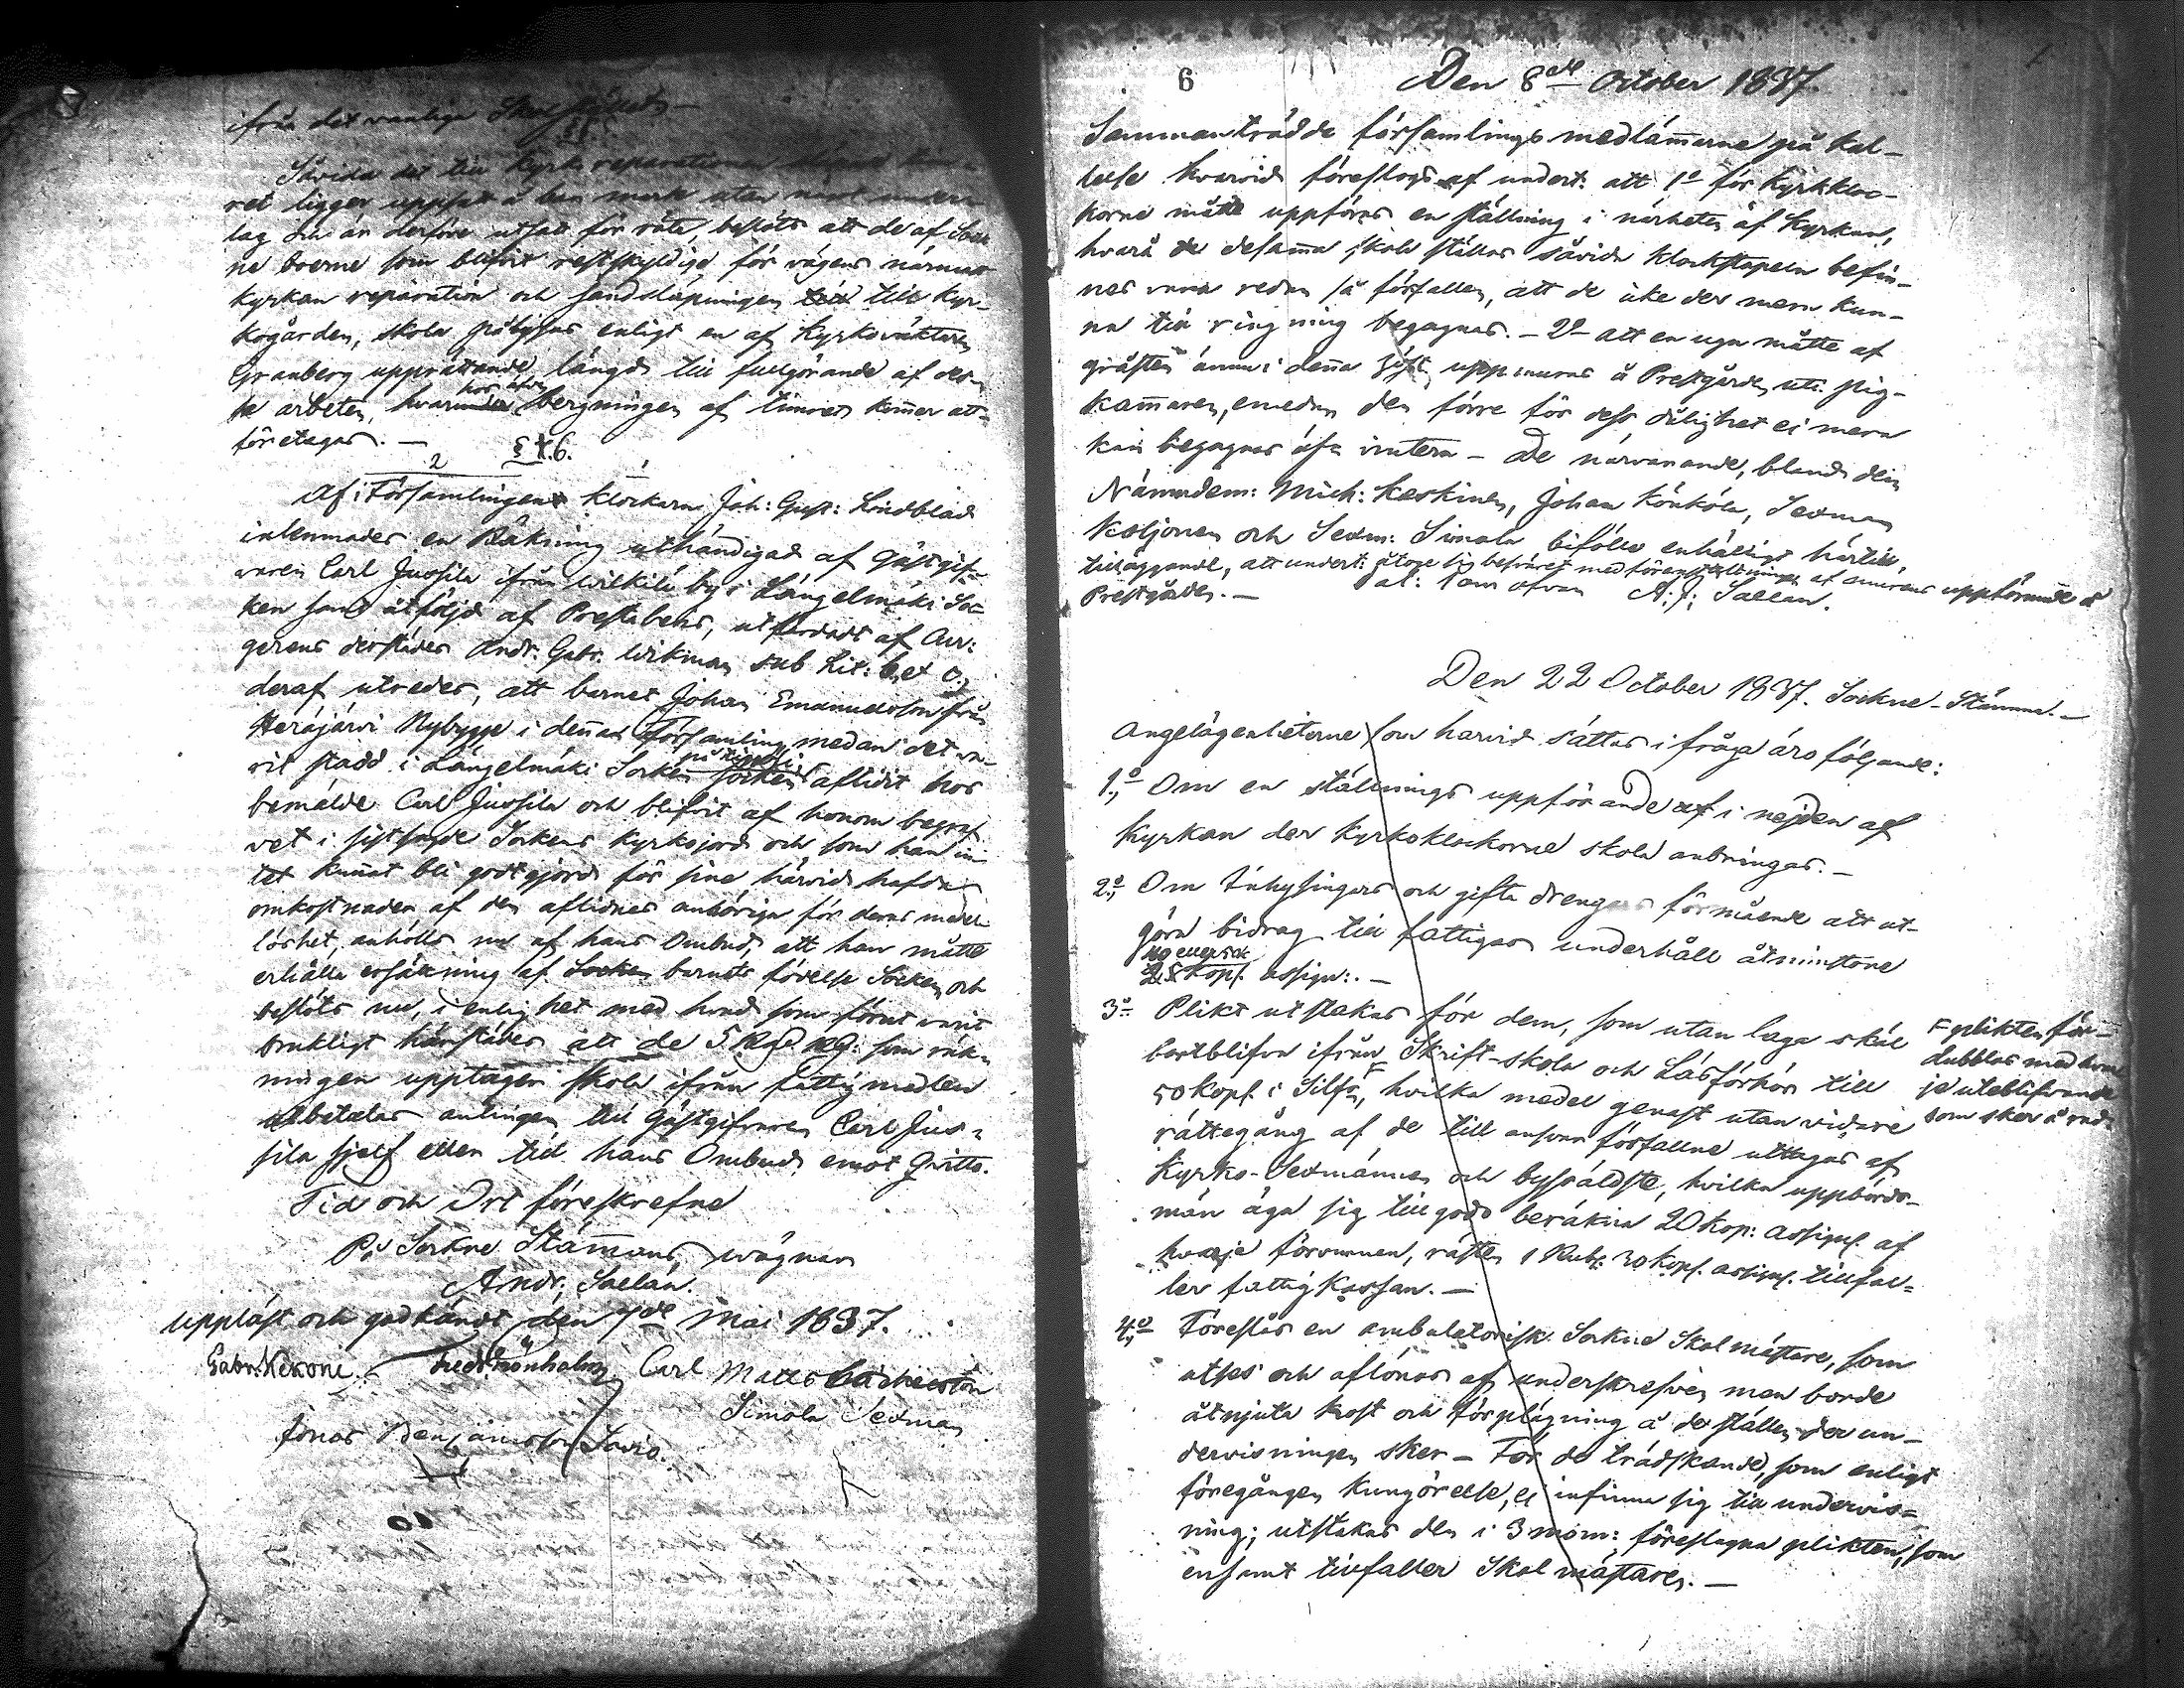 ifrån det vanliga Skolhållet. —
Såvida det till Kyrko reparationen
ret ligger uppsatt å bar mark utan under-
lag och är derföre utsatt för röta, beslöts att de af Sock-
ne boerne som blifvit restskyldige för vägens närmast
Kyrkan reparation och sandsläpningen till Kyr-
kogården, skola påbjudas enligt en af Kyrkoväktaren
Granberg upprättande längd till fullgörande af des-
sa arbeten, hvar bergningen af timret kommer att
företagas. —
§ 6.
Af i Församlingens Klockare Joh: Gust: Lindblad
inlemnades en Räkning uthändigad af Gästgif-
varen Carl Jussila ifrån Wilkilä by i Längelmäki Soc-
ken samt åtföljd af Prestabevis, utfärdadt af Arr:
gerens derstädes Andr. Gabr. Wikman sub Lit: b et c.,
deraf utredes, att barnet Johan Emanuelsson från
Herajärvi Nybygge i denna Församling medan det va-
rit stadd i Längelmäki Socken Socken aflidit hos
bemälde Carl Jussila och blifvit af honom begraf-
vet i sistsagde Sockens Kyrkojord och som han in-
tet kunnat bli godtgjord för sine härvid hafde
omkostnader af den aflidnes anhörige för deras medel-
löshet, anhölls nu af hans Ombud, att han måtte
erhålla ersättning af Socken barnets födelse Socken, och
beslöts nu, i enlighet med hvad som förut varit
brukligt härstädes att de 5 som räk-
ningen upptager skola ifrån fattigmedlen
utbetalas antingen till Gästgifvaren Carl Jus-
sila sjelf eller till hans Ombud emot Qvitto.
Tid och Ort föreskrefne
På Sockne Stämmans wägnar
Andr. Saelan.
Uppläst och godkändt den 7de Maj 1837.
Gabr. Kekoni. Fredr. Grönholm Carl Matts
Simola Sexman
Jonas Benjaminsson Savio.
6
Den 8de October 1837.
Sammanträdde församlings medlämmarne på kal-
lelse hvarvid föreslogs af undert: att 1o för Kyrkkloc-
korne måtte uppföras en ställning i närheten af Kyrkan,
hvarå de desamma skola ställas såvida klockstapeln befin-
nes vara redan så förfallen, att de icke der mera kun-
na till ringning begagnas. — 2o att en ugn måtte af
gråsten ännu i denna höst uppmuras å Prestgården uti pig-
kammaren, emedan den förre för dess dålighet ei mera
kan begagnas öfver vintern — De närvarande, bland dem
Nämndem: Mich: Keskinen, Johan Könkölä, Sexman
Koljonen och Sexm: Simola biföllo enhälligt härtill,
tilläggande, att undert: åtoge sig besväret med föranstaltningen af murens uppförande å
Prestgården. — ut: som ofvan A: J: Saelan.
Den 22 October 1837. Sockne-Stämma. —
Angelägenheterne som härvid sättas i fråga äro följande:
1o Om en ställnings uppförande af i nejden af
Kyrkan der Kyrkoklockorne skola anbringas. —
2o Om Inhysingars och gifta drengars förmående att ut-
göra bidrag till fattigas underhåll åtminstone
kop. assign:. —
3o Plikt utstakas för dem, som utan laga skäl
bortblifva ifrån Skrift-skola och Läsförhör till
50 kop. i Silfver, hvilka medel genast utan vidare
rättegång af de till ansvar förfallne uttages af
Kyrko-Sexmännen och bysåldste, hvilka uppbörds-
män äga sig till godo beräkna 20 kop: assign. af
hvarje förvunnen, resten 1 Rub: 30 Kop. assign. tillfal-
ler fattigkassan. —
plikten för-
dubblas med hvar
je uteblifvande
som sker å rad
4o Föreslås en ambulatorisk Sockne Skolmästare, som
utses och aflönas af underskrefven men borde
åtnjuta kost och förplägning å de ställen der un-
dervisningen sker — För de trädskande, som enligt
föregången kungörelse, ei infinna sig till undervis-
ning; utstakas den i 3 mom: föreslagna plikten, som
ensamt tillfaller Skolmästaren. —